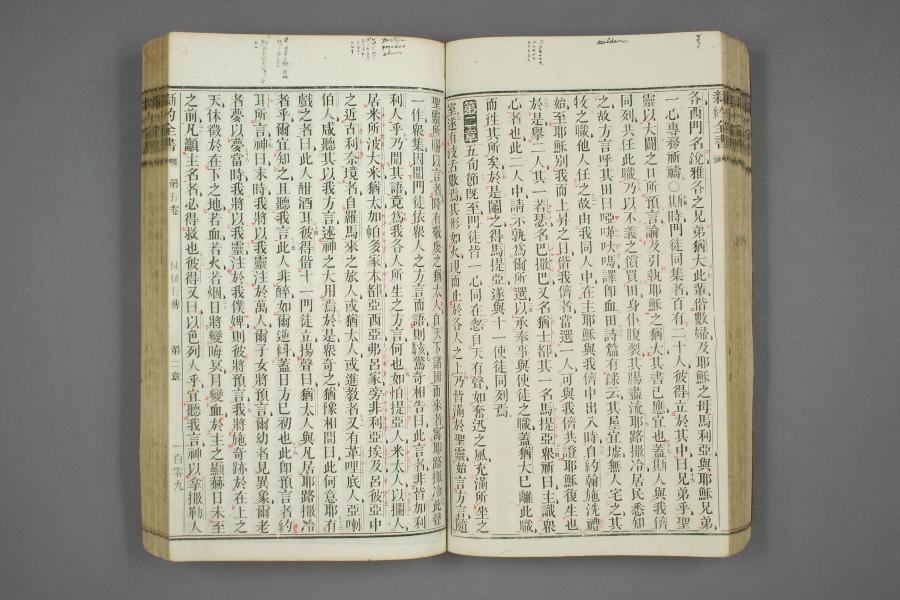 各西門名銳雅各之兄弟猶大此輩偕數婦及耶穌之母馬利亞與耶穌兄弟
一心專務祈禱○其時門徒同集者百有二十人彼得立於其中曰兄弟乎聖
靈以大闢之口所預言論及引執耶穌之猶大其書已應宜也蓋斯人與我儕
同列共任此職乃以不義之償買田身仆腹裂其腸盡流耶路撒冷居民悉知
之故方言呼其田曰 譯即血田詩篇有錄云其屋宜墟無人宅之其
牧之職他人任之故由我同人中在主耶穌與我儕中出入時自約翰施洗禮
始至耶穌別我而上昇之日偕我儕者當選一人可與我儕共證耶穌復生也
於是舉二人其一若瑟名巴撒巴又名猶士都其一名馬提亞眾祈曰主識眾
心者也此二人中請示孰為爾所選以承奉事與使徒之職蓋猶大已離此職
而往其所矣於是鬮之得馬提亞遂與十一使徒同列焉
第二章 五旬節既至門徒皆一心同在忽自天有聲如奮迅之風充滿所坐之
室遂有 舌數焉其形如火現而止於各人之上乃皆滿於聖靈始言方言隨
聖靈所賜以言者時有敬虔之猶太人自天下諸國而來者寓耶路撒冷此聲
一作眾集因聞門徒依眾人之方言而語則駭驚奇相告曰此言者非皆加利
利人乎乃聞其語竟為我各人所生之方言何也如怕提亞人米太人以攔人
居米所波大米猶太加帕多家本都亞西亞弗呂家旁非利亞埃及呂彼亞中
之近古利奈境者自羅馬來之旅人或猶太人或進教者又有革哩底人亞喇
伯人咸聽其以我方言述神之大用焉於是眾奇之猶豫相問曰此何意耶有
戲之者曰此人酣酒耳彼得偕十一門徒立揚聲曰猶太人與凡居耶路撒冷
者乎爾宜知之且聽我言此人非醉如爾逆料蓋日方巳初也此即預言者約
耳所言神曰末時我將以我靈注於萬人爾子女將預言爾幼者見異象爾老
者夢以夢當時我將以我靈注於我僕婢則彼將預言我將施奇跡於在上之
天休徵於在下之地若血若火若烟日將變晦冥月變血於主之顯赫日未至
之前凡龥主名者必得救也彼得又曰以色列人乎宜聽我言神以拿撒勒人
新約全書
第五卷
第二章
一百零九
新約全書